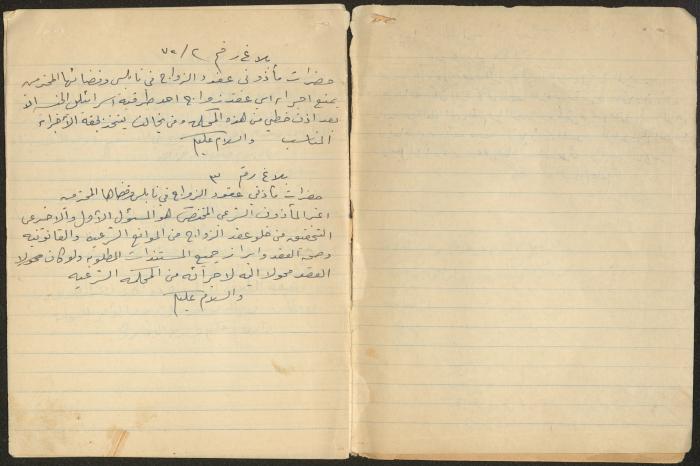 بلاغ رقم ٧٢/٢
حضرات مأذوني عقود الزواج في نابلس وقضائها المحترمين
يمنع اجراء اي عقد زواج احد طرفيه اسرائيلي الجنسية الا
بعد اذن خطي من هذه المحكمة ومن يخالف يتخذ بحقه الاجراء
المناسب والسلام عليكم
بلاغ رقم ٣
حضرات مأذوني عقود الزواج في نابلس وقضاها المحترمين
المأذون الشرعي المختص هو المسئول الاول والاخير عن
التحقق من خلو عقد الزواج من الموانع الشرعية والقانونية
وصحة العقد وابراز جميع المستندات المطلوبة ولو كان محولا
العقد محولا اليه لاجرائه من المحكمة الشرعية
والسلام عليكم